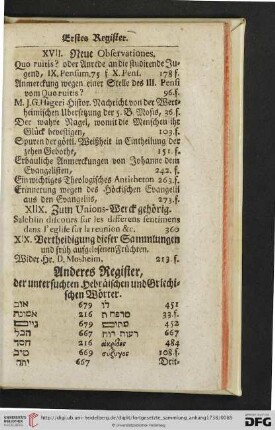 Erstes Register.
XVII. Neue Observationes.
Quo ruitis? oder Anrede an die studirende Ju-
gend, IX. Pensum, 75 f X. Pent. 178 f.
Anmerckung wegen einer Stelle des III. Pensi
vom Quo ruitis? 96. f.
M. J. G. Hageri Histor. Nachricht von der Wert-
heimischen Ubersetzung der 5. B. Mosis, 36. f.
Der wahre Nagel, womit die Menschen ihr
Glück bevestigen, 103. f.
Spuren der göttl. Weißheit in Eintheilung der
zehen Geboth, 151. f.
Erbauliche Anmerckungen von Johanne dem
Evangelisten, 242. f.
Ein wichtiges Theologisches Antitheton 263. f.
Erinnerung wegen des Evangelii
aus den Evangeliis, 273. f.
XIIX. Zum Unions-Werck gehörig.
Salchlin discours sur les differens sentimens
dans l'eglise sur la reunion &c. 360
XIX. Vertheidigung dieser Sammlungen
und früh aufgelesenen Früchten.
Wider Hr. D. Mosheim, 213. f.
Anderes Register,
der untersuchten Hebräischen und Griechi-
schen Wörter.
אוב 679 לו 451
אמונה 216 מרפה 33. f.
גוים 679 452
הבל 667 רעות רוח 667
חסד 216 484
טוב 668 σύζυγος 108. f.
יתה 667